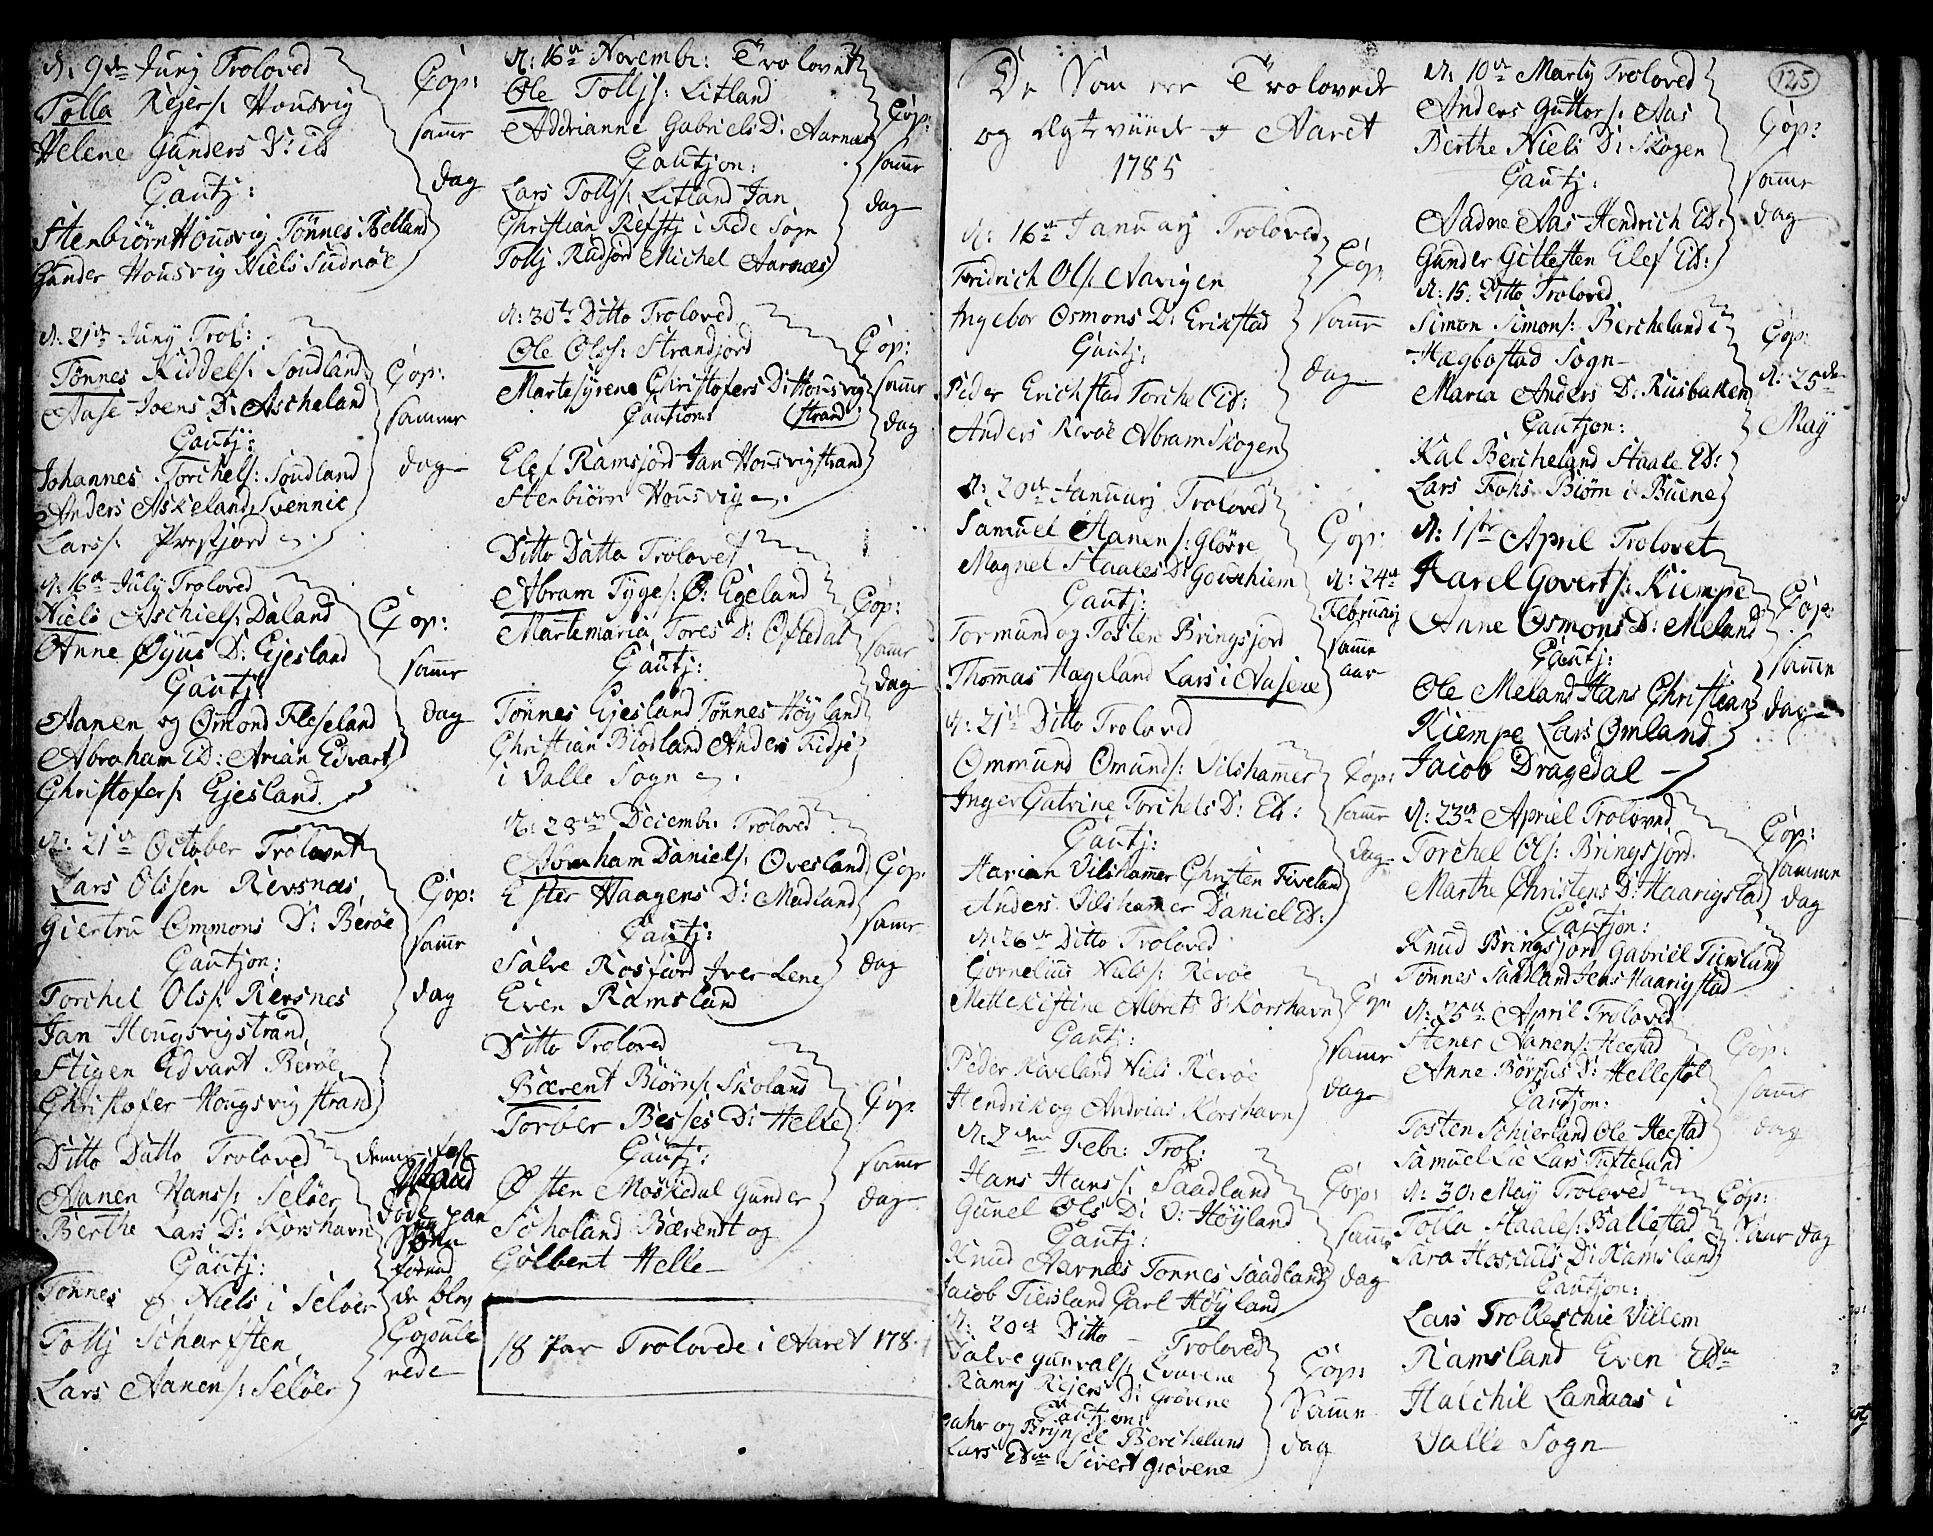 d. 9de Junj Troloved
Tolla Rejers: Housvig
Helene Gunders D: ib
Cautj:
Stenbiörn Housvig Tönnes Rölland
Gunder Housvig Niels Sudnöe
Cop:
samr
dag
d. 21de Juny Trol:
Tønnes Kiddels: Soudland
Aase Joens D: Ascheland
Cautj:
Johannes Torchels: Soudland
Anders Askeland, Svennic
Larss:
Cop:
sammr
dag
d. 16de July Troloved
Niels Aschiels: Daland
Anne Øyus D: Ejesland
Cautj:
Aanen og Omond Fleseland
Abraham ib: Arian Edvart
Christofers: Ejesland
Cop:
samr
dag
d: 21de October Trolovet
Lars Olssen Revsnæs
Giertru Ommons D: Berøe
Cautjon:
Torchel Olss: Revsnes
Jan Hougsvigstrand
Stigen Edvart Berøe
Christofer Hougsvig strand
Cop:
samr
dag
Ditto Datto Troloved
Aanen Hanss: Seløer
Berthe Lars D: Korshavn
Cautj:
Tønnes & Niels i Seløer
Tollj Scharften
Lars Aanens: Seløer
døde paa
forend
de blev
Copule
rede
d: 16de Novembr: Trolovet
Ole Tolljs: Litland
Addrianne Gabriels D: Aarnæs
Cautjon:
Lars Tolljs: Litland Jan
Christian Refstj i Fede Sogn
Tollj Radjord Michel Aarnæs
Cop:
samr
dag
d: 30te Ditto Troloved
Ole Olss: Strandjord
Martesyrene Christofers D: Housvig
strand
Cautions
Elef Ramsjord Jan Housvigstrand
Stenbiörn Housvig
Cop:
samr
dag
Ditto Datto Troloved
Abram Tyges: Ø: Egeland
Martemaria Tores D: Oftedal
Cautj:
Tønnes Ejesland Tønnes Høyland
Christian Biodland Anders Fidje
i Valle Sogn
Cop:
samr
dag
d: 28de Decembr: Troloved
Abraham Daniels: Ovesland
Ester Haagens D: Madland
Cautj:
Salve Rosfiord Iver Lene
Even Ramsland
Cop:
samr
dag
Ditto Troloved
Bærent Biörns: Skoland
Torber Besses D: Helle
Cautj:
Østen Moskedal Gunder
Scholand Bærendt og
Colbent Helle
Cop:
samr
dag
18 Par Trolovede i Aaret 178
125
De Som ere Trolovede
og Ægteviede i Aaret
1785
d: 16de January Troloved
Fridrich Ols: Aavigen
Ingebor Osmons D: Erikstad
Cautj:
Peder Erichstad Torchel ib:
Anders Revøe Abram Skogen
Cop:
samr
dag
d: 20de January Troloved
Samuel Aanens: Gløvre
Magnel Staales D: Govschiem
Cautj:
Tormund og Tosten Bringsjord
Thomas Hægeland Lars i Aasene
Cop:
d: 24de
February
samme
aar
d: 21de Ditto Troloved
Ommund Omunds: Vilshammer
Inger Catrine Torchels D: ib:
Cautj:
Harian Vilshammer Christen Fiveland
Anders Vilshamer Daniel ib:
Cop:
samr
dag
d: 26de Ditto Troloved
Cornelius Niels: Revøe
Mettekistine Abrets D: Korshavn
Cautj:
Peder Raveland Niels Revøe
Hendrik og Andrias Korshavn
Cop
samr
dag
d. 2den Febr: Trol:
Hans Hans: Saadland
Gunel Ols D: V: Høyland
Cautj:
Knud Aarnæs Tonnes Saadland
Jacob Tiersland Carl Høyland
Cop:
samr
dag
d: 20de Ditto Troloved
Salve Gunvals: Grøvene
Ramj Rejers D: Grøvene
Cautjon:
og Brynjel Bercheland
Lars ibm Sivert Grøvene
Cop:
Samr
dag
d: 10de Martij Troloved
Anders Guttors: Aas
Berthe Niels D: Skogen
Cautj:
Aadne Aas Hendrich ib:
Gunder Gillesten Elef ib:
Cop:
samr
dag
d: 15: Ditto Troloved
Simon Simons: Bercheland i
Hægbostad Sogn
Maria Anders D: Riisbakken
Cautjon:
Kal Bercheland Staale ib:
Lars Fohs Biörn i Buene
Cop:
d: 25de
May
d: 1ste April Trolovet
Karel Goverts: Kiempe
Anne Osmons D: Meland
Cautj:
Ole Meland Hans Christian
Kiempe Lars Omland
Jacob Dragedal
Cop:
samn
dag
d: 23de Apriel Troloved
Torchel Ols: Bringsjord
Marthe Christens D: Haarigstad
Cautjon:
Knud Bringsjord Gabriel Tiersland
Tønnes Saadland Jens Haarigstad
Cop:
samme
dag
d: 25de April Troloved
Stener Aanens: Heestad
Anne Børjus D: Hellestøl
Cautjon:
Tosten Schierland Ole Heestad
Samuel Lie Lars Tuftelund
Cop:
samr
dag
d: 30: May Troloved
Tolla Staales: Ballestad
Sara Hoskuls D: Ramsland
Cautjon:
Lars Trolleschie Villem
Ramsland Even ibm
Halchil Landaas i
Valle Sogn
Cop:
Samr dag